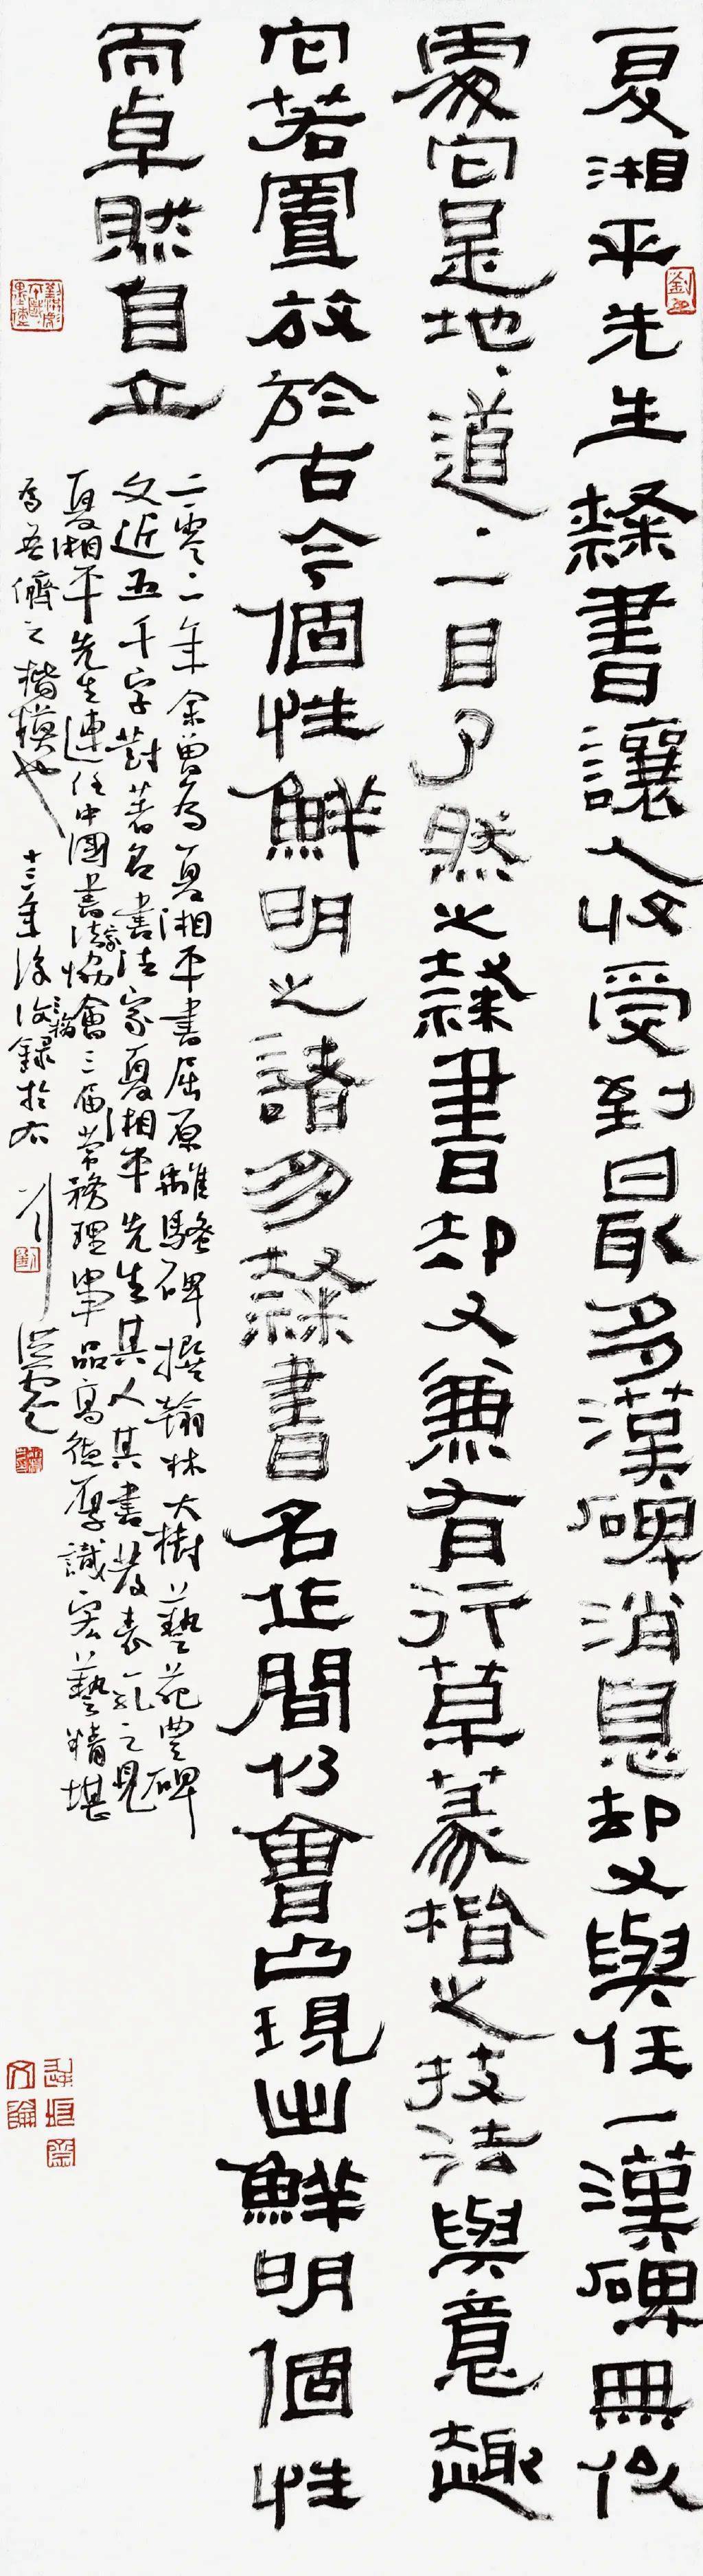 夏湘平先生隸書讓人收受到最多漢碑消息却又與任一漢碑無似
處它是地道一目了然之隸書却又兼有行草篆楷之技法與意趣
它若置放於古今個性鮮明之諸多隸書名作間仍會凸現出鮮明個性
而卓然自立
二零一二年余曾為夏湘平書屈原離騷碑撰翰林大樹藝苑豐碑
文近五千字對著名書法家夏湘平先生其人其書發表一孔之見
夏湘平先生連任中國書法家協會三屆常務理事品高德厚識宏藝精堪
為吾儕之楷模也
十三年後後錄於右
劉